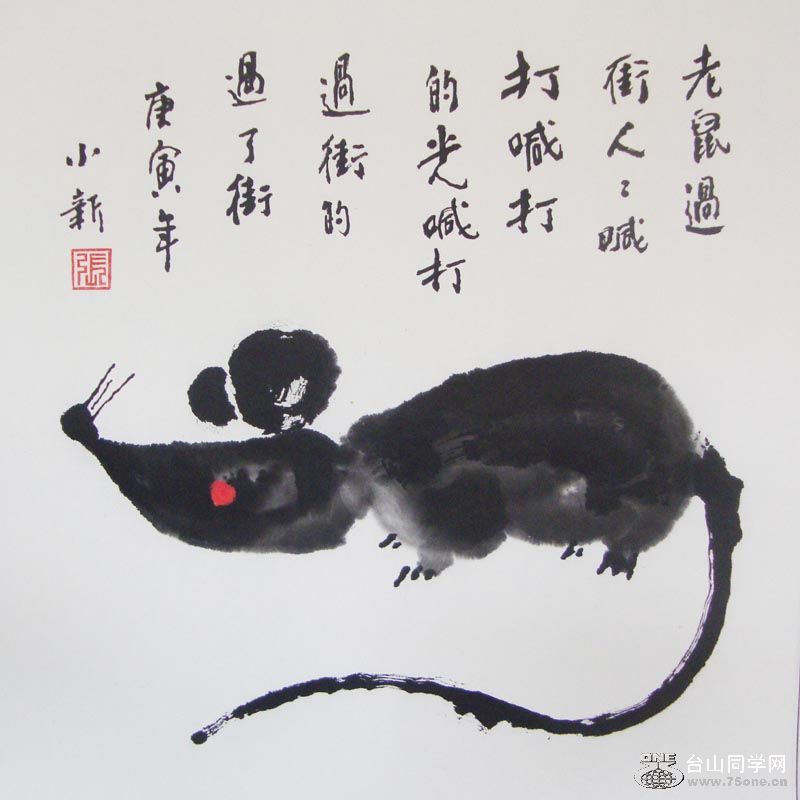 老鼠過
街人〻喊
打喊打
的光喊打
過街的
過了街
庚寅年
小新
張
ONE
台山同学网
www.75one.cn